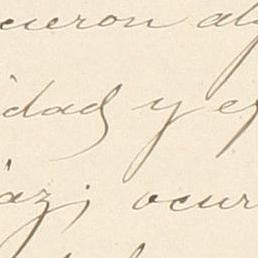 cieron al
idad y es
az; ocur